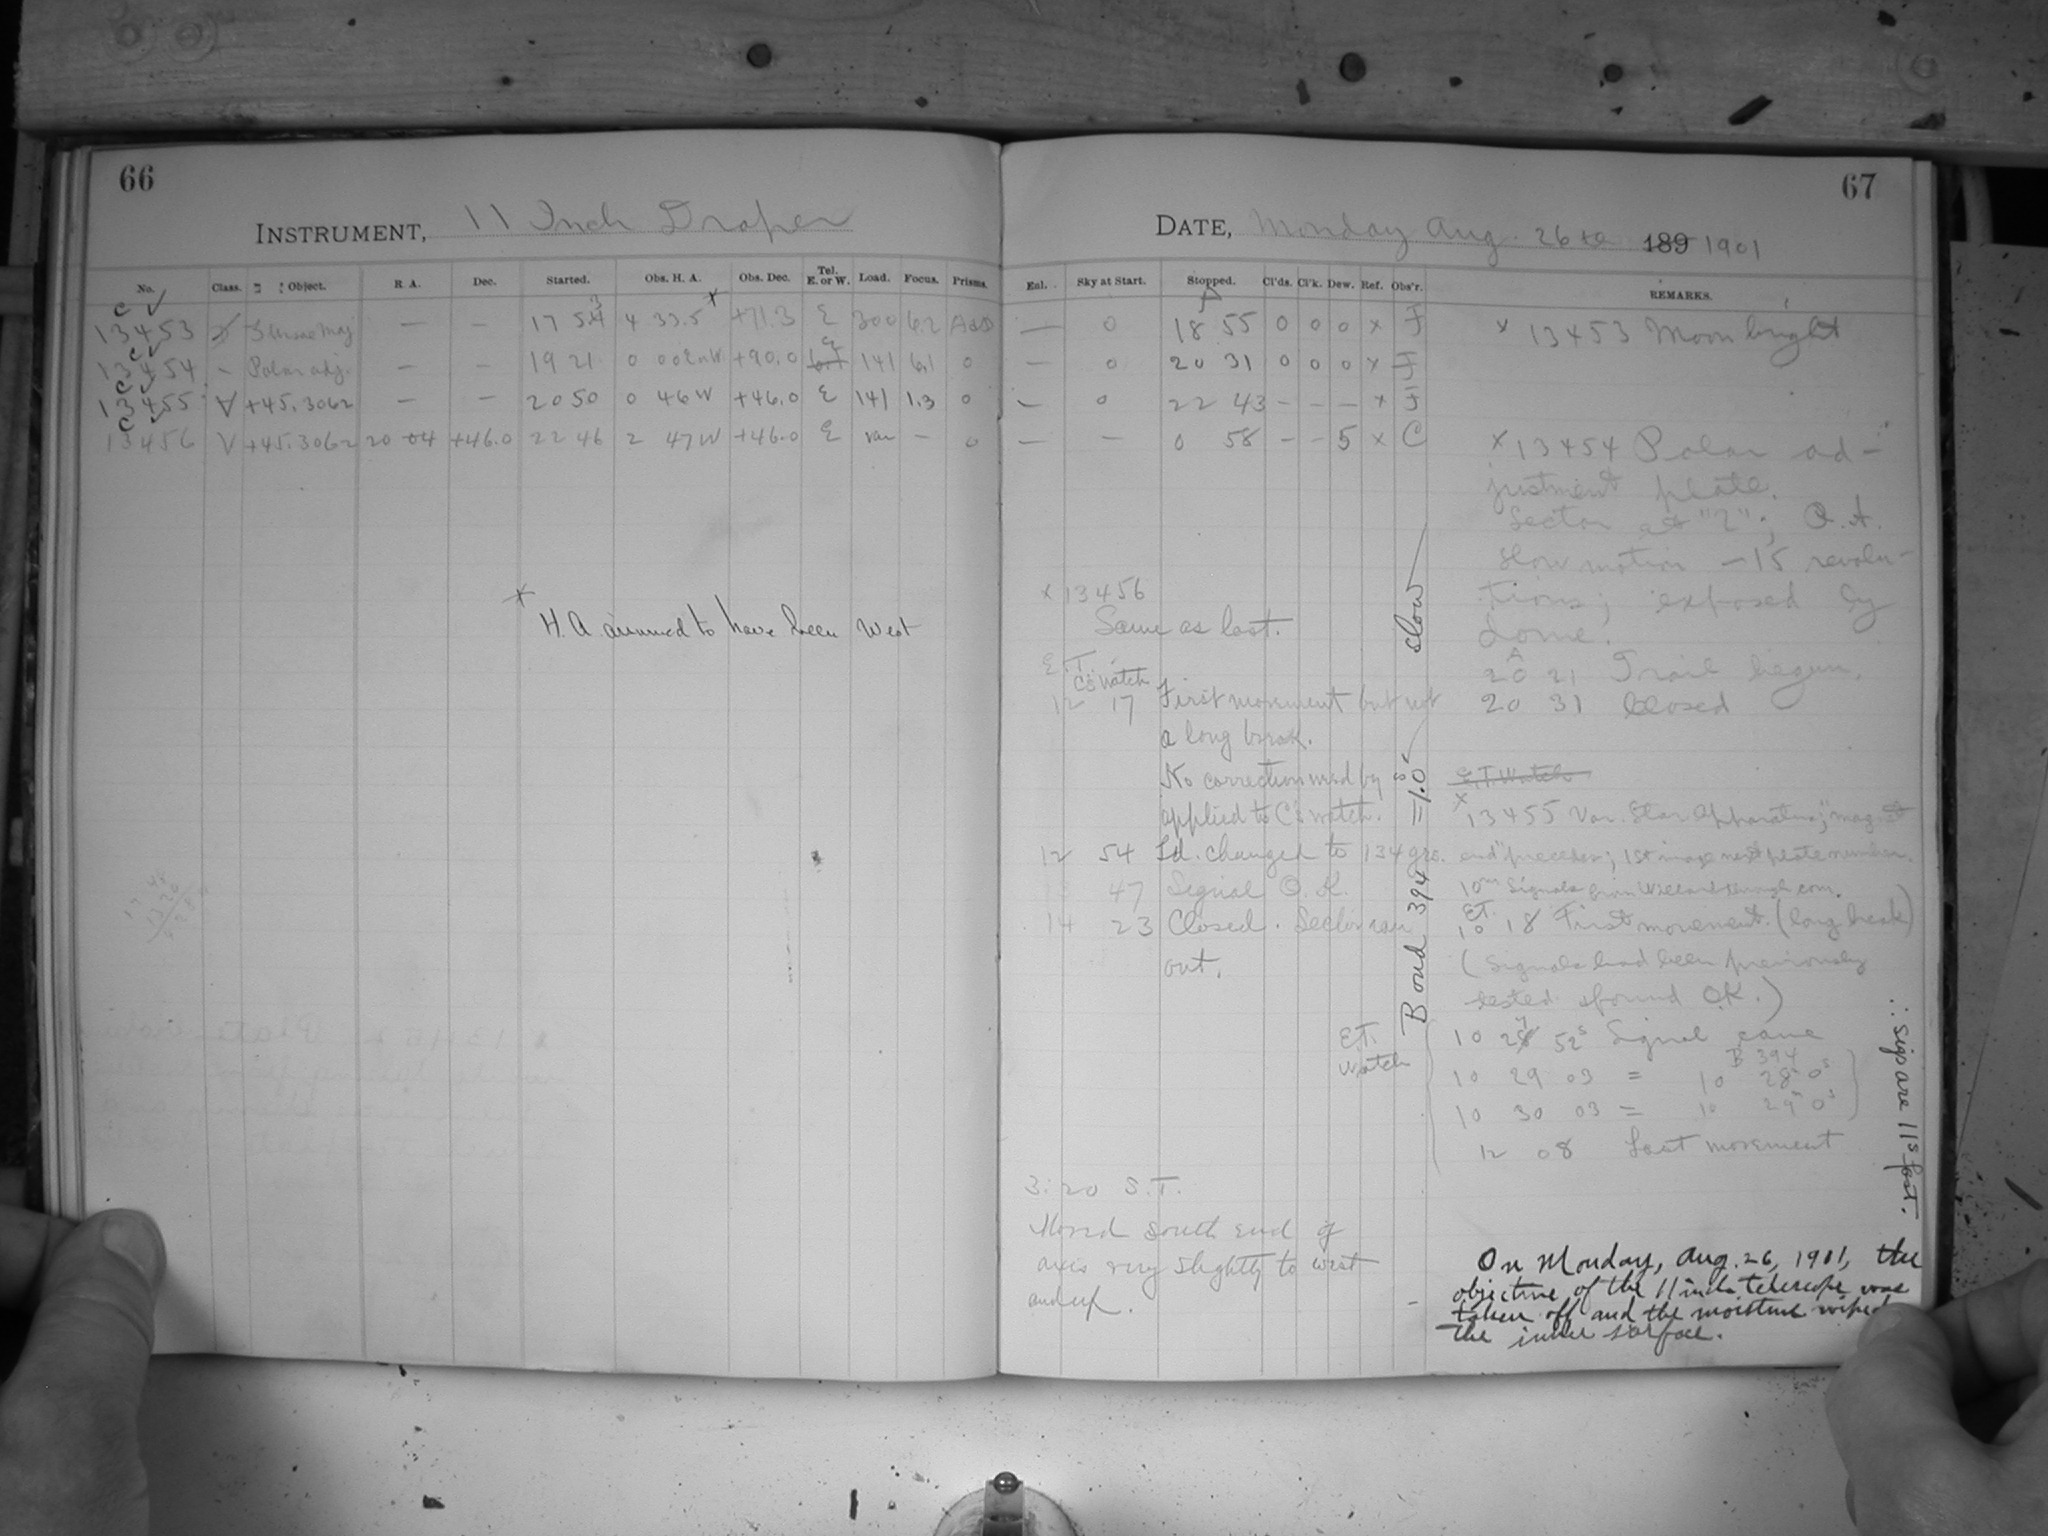 66
INSTRUMENT, 11 Inch Draper
No. Class. Object. R. A. Dec. Started. Obs. H. A. Obs. Dec. Tel. E. or W. Load. Focus. Prisms.
13453 — — 17 54 4 33.5 +71.3 E 300 6.2
13454 – Polar adj. — — 19 21 0 00 +90.0 E 141 6.1 0
13455 V +45.3062 — — 20 50 0 46 W +46.0 E 141 1.3 0
13456 V +45.3062 20 04 +46.0 22 46 2 47 W +46.0 E var – 0
x
H. A. assumed to have been West
67
DATE, Monday Aug. 26th 189 1901
Eal. Sky at Start. Stopped. Cl'ds. Cl'k. Dew. Ref. Obs'r. REMARKS.
— 0 18 55 0 0 0 x F
— 0 20 31 0 0 0 x F
— 0 22 43 – – – x F
— — 0 58 – – 5 x C
x 13456
Same as last.
E.T.
C's watch
12 17 First movement but not
a long break.
No correction need be
applied to C's watch.
12 54 Ld. changed to 134 grs.
13 47 Signal O.K.
14 23 Closed. Sector ran
out.
Bond 394 = 1.0s slow
3:20 S.T.
Moved south end of
axis very slightly to west
and up.
x 13453 Moon bright
x 13454 Polar ad-
justment plate.
Sector at "2"; R.A.
slow motion – 15 revolu-
tions; exposed by
dome.
20 21 Trail begun.
20 31 Closed
E.T. Watch
x 13455 Var. Star Apparatus; "magnet
end" precedes; 1st image next plate number.
10m Signals from Willard through com.
E.T.
10 18 First movement. (long break)
(Signals had been previously
tested & found OK.)
E.T.
Watch
10 27 52s Signal came
B 394
10 29 03 = 10 28 0s
10 30 03 = 10 29 0s
12 08 Last movement
∴ sigs are 11s fast.
On Monday, Aug. 26, 1901, the
objective of the 11 inch telescope was
taken off and the moisture wiped
the inner surface.